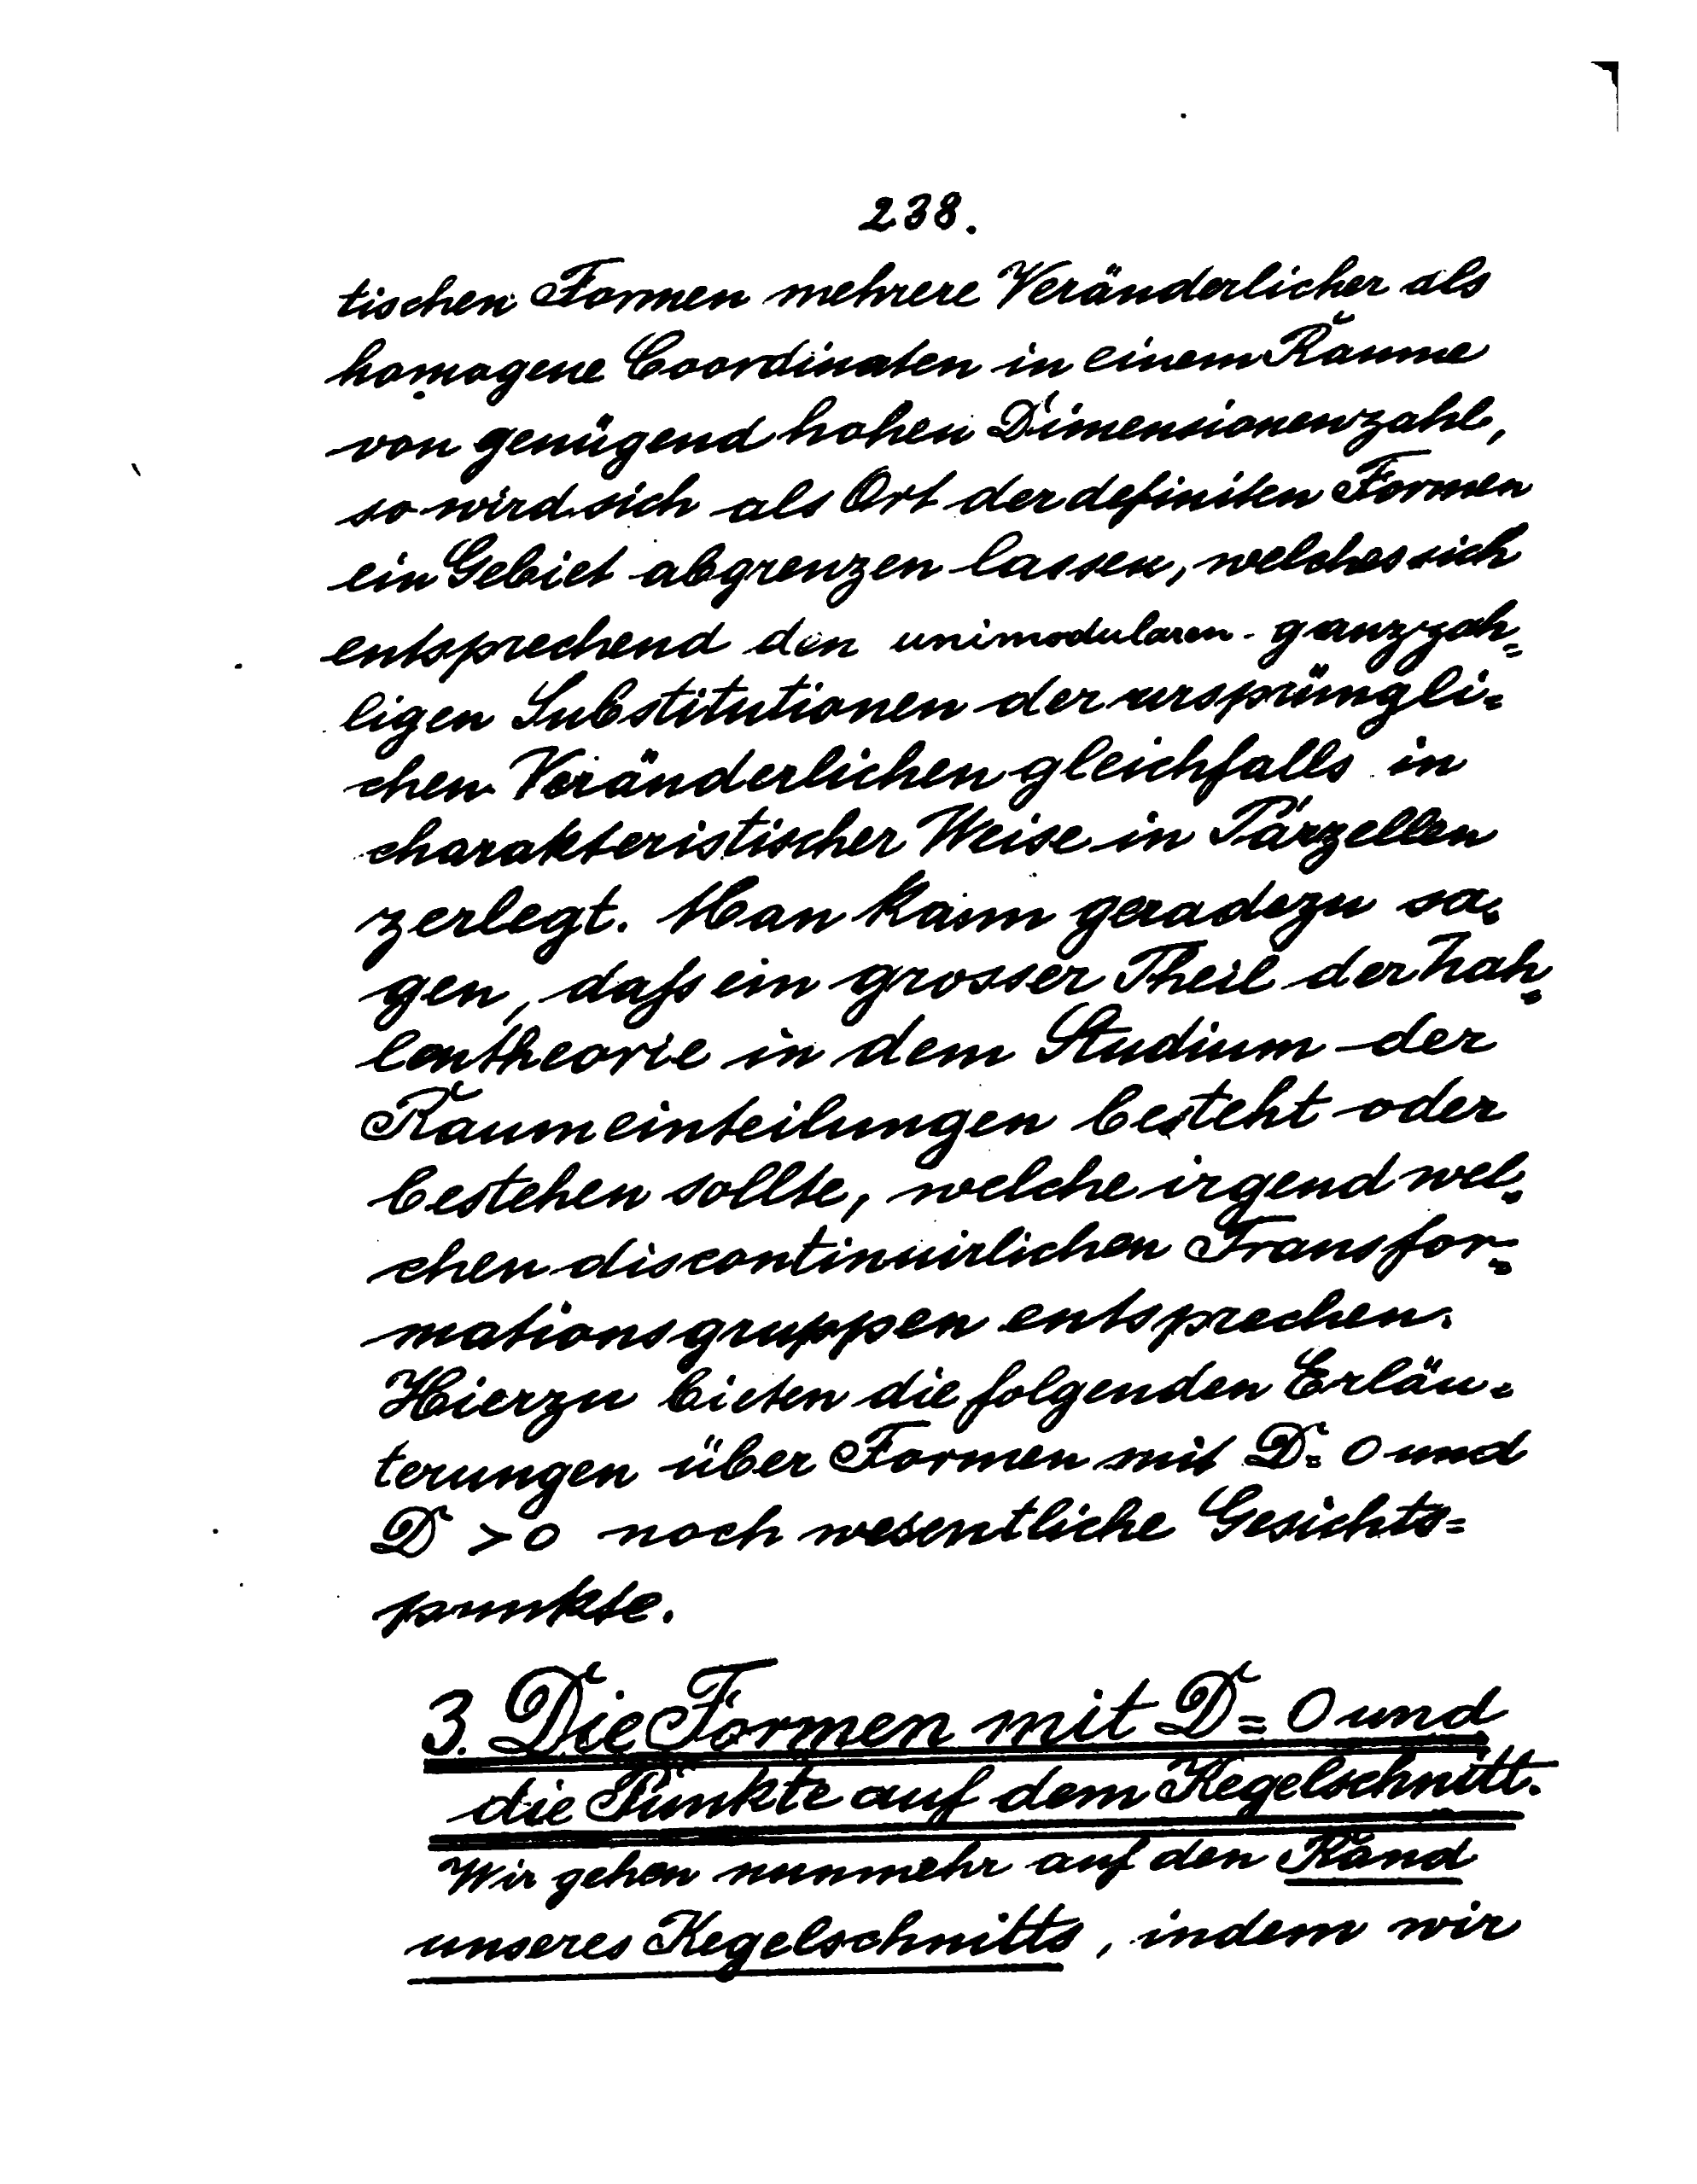 238.
tischen Formen mehrere Veränderlicher als
homogene Coordinaten in einem Raume
von genügend hohen Dimensionenzahl,
so wird sich als Ort der definiten Formen
ein Gebiet abgrenzen lassen, welches sich
entsprechend den unimodularen ganzzah=
ligen Substitutionen der ursprüngli=
chen Veränderlichen gleichfalls in
charakteristischer Weise in Parzellen
zerlegt. Man kann geradezu sa=
gen, daſs ein grosser Theil der Zah=
lentheorie in dem Studium der
Raumeinteilungen besteht oder
bestehen sollte, welche irgend wel=
chen discontinuirlichen Transfor=
mationsgruppen entsprechen.
Hierzu bieten die folgenden Erläu=
terungen über Formen mit D = 0 und
D > 0 noch wesentliche Gesichts=
punkte.
3. Die Formen mit D = 0 und
die Punkte auf dem Kegelschnitt.
Wir gehen nunmehr auf den Rand
unseres Kegelschnitts, indem wir